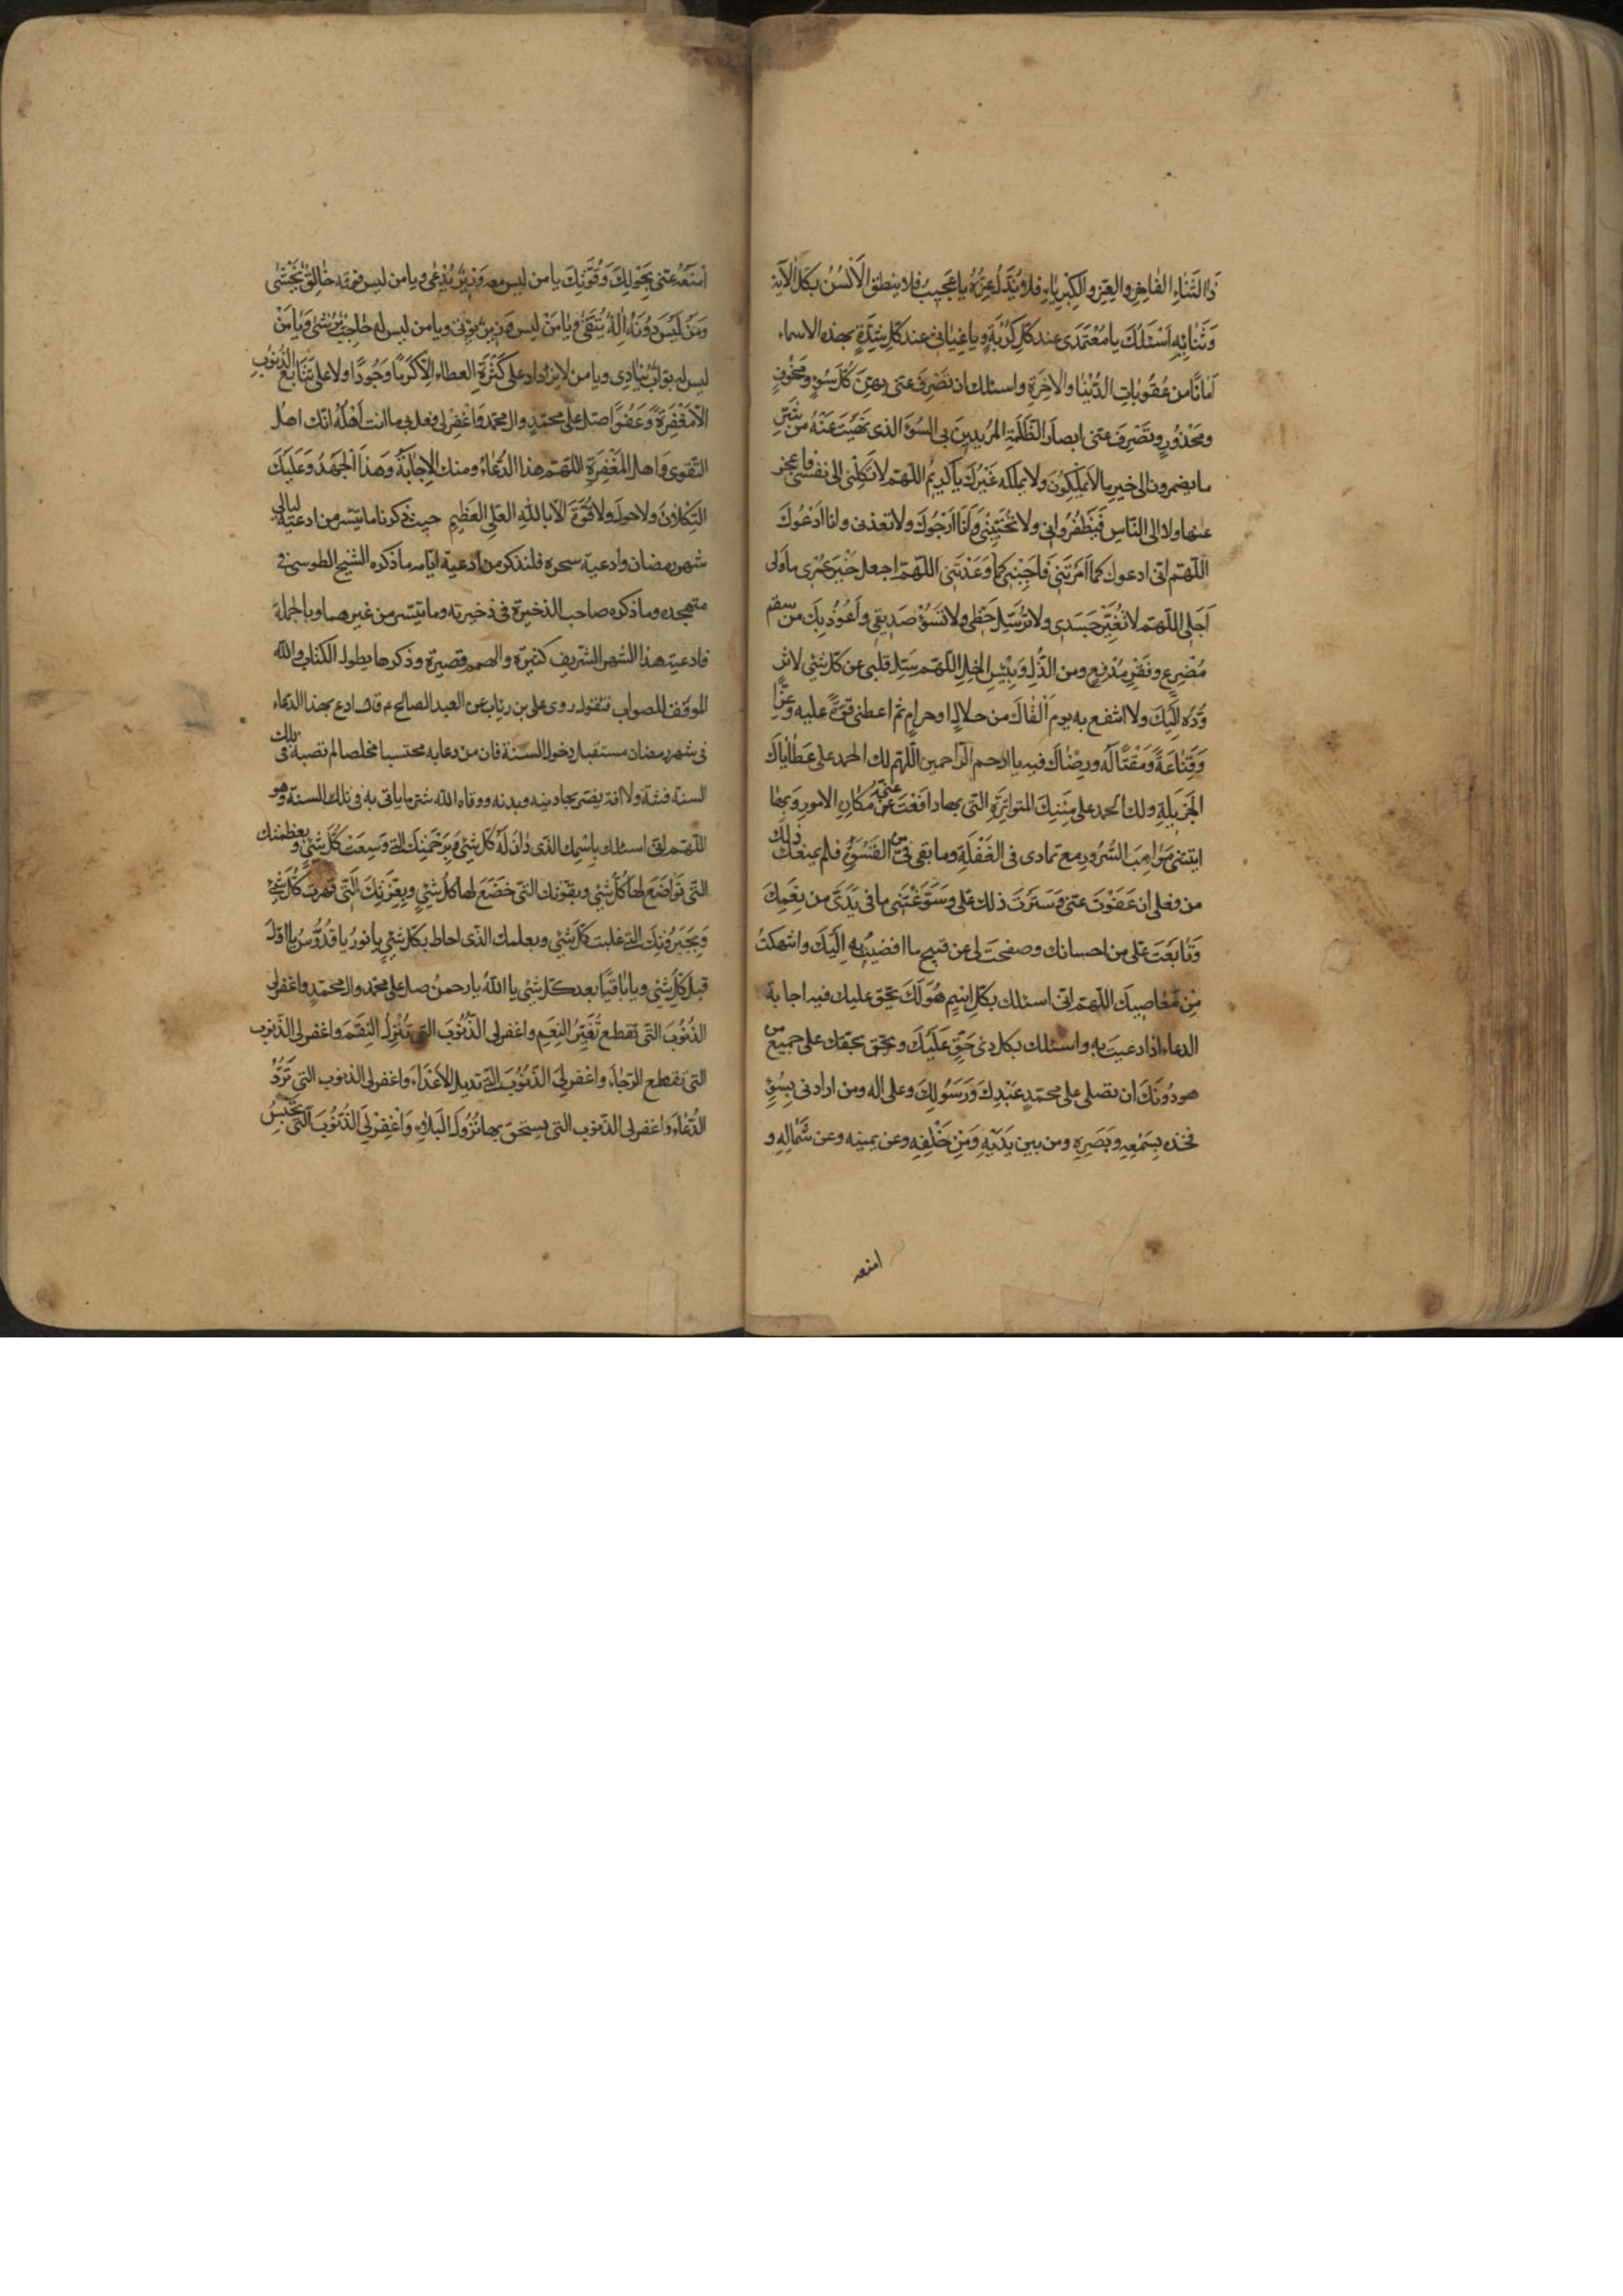 ذَا الثَّنَاءِ الفَاخِرِ وَالعِزِّ وَالكِبْرِيَاءِ فَلَا يُذَلُّ عِزُّهُ يَا عَجِيبُ فَلَا يَنطِقُ الأَلْسُنُ بِكُلِّ آلَائِهِ
وَثَنَائِهِ أَسْئَلُكَ يَا مُعْتَمَدِى عند كُلِّ كُرْبَةٍ وَيا غِيَاثى عند كُلِّ شِدَّةٍ بهذه الاسماء
أَمَانًا من عُقُوبَاتِ الدُّنْيَا وَالآخِرَةِ واسئلك ان تَصْرِفَ عَنّى بهِنَّ كُلَّ سُوءٍ وَمَخُوفٍ
ومَحْذُورٍ وتَصْرِفَ عَنّى ابصارَ الظَّلَمَةِ المُرِيدِينَ بِى السُّوءَ الذى نَهَيْتَ عَنْهُ من شَرِّ
ما يضمرون الى خيرِ ما لا يَمْلِكُونَ ولا يملكه غَيْرُكَ يا كَرِيمُ اللّهمّ لا تَكِلْنى الى نفسى فاعجز
عنها ولا الى النّاسِ فَيَظْفَرُوا بى ولا تُخَيِّبْنِى وَأَنَا أَرْجُوكَ ولا تعذبنى وانا أَدْعُوكَ
اللّهمّ انى ادعوك كما أَمَرْتَنِى فَأَجِبْنِى كما وَعَدْتَنِى اللّهمّ اجعل خَيْرَ عُمْرِى ما ولى
أَجَلِى اللّهمّ لا تُغَيِّرْ جَسَدِى ولا تُرْسِلْ حَظّى ولا تَسُؤْ صَدِيقِى وأَعُوذُ بِكَ من سقم
مُضْرِعٍ وفَقْرٍ مُدْقِعٍ ومن الذُّلِ وَبِئْسَ الخِلِّ اللّهمّ سَلِّ قلبى عن كلّ شئى لا
أَتَزَوَّدُهُ اليك ولا انتفع به يوم أَلْقَاكَ من حلالٍ او حرامٍ ثم اعطنى قُوَّةً عليه وَعِزًّا
وَقَنَاعَةً وَمَقْتًا لَهُ ورِضَاكَ فيه يا ارحم الراحمين اللّهمّ لك الحمد على عَطَايَاكَ
الجَزِيلَةِ ولك الحمد على مِنَنِكَ المتواتِرَةِ التى بها دافَعْتَ عنّى مَكَارِهَ الامورِ وَبِهَا
اتيتنى مَوَاهِبَ السُّرُورِ مع تمادى فى الغَفْلَةِ وما بقى فىّ من القَسْوَةِ فلم يمنعك ذلك
من فعلى ان عَفَوْتَ عنّى وَسَتَرْتَ ذلك عَلَى وَسَوَّغْتَنِى ما فى يَدَىَّ من نِعَمِكَ
وَتَابَعْتَ عَلَى من احسانك وصفحت لى عن قبيح ما افضيت به إِلَيْكَ وانتهكتُ
مِنْ مَعَاصِيكَ اللّهمّ انى اسئلك بكلّ اسْمٍ هُوَ لَكَ يحق عليك فيه اجابة
الدعاء اذا دعيت به واسئلك بكل ذى حَقٍّ عَلَيْكَ وبحق بحقك على جميع من
هو دُونَكَ أن تصلى على محمّدٍ عَبْدِكَ وَرَسُولِكَ وعلى اله ومن ارادنى بِسُوءٍ
فخذ بِسَمْعِهِ وبَصَرِهِ ومن بين يَدَيْهِ وَمِنْ خَلْفِهِ وعن يمينه وعن شِمَالِهِ و
امنعه
أمنَعْهُ عنى بِحَوْلِكَ وَقُوَّتِكَ يا من ليس معه رَبٌّ يُدْعى ويا من ليس فوقه خَالِقٌ يُخْشَى
وَمَنْ لَيْسَ دُونَهُ إِلَهٌ يُتَّقَى وَيَا مَنْ ليس وَزِيرٌ يُؤْتى ويا من ليس له حَاجِبٌ يُرْشَى وَيَا مَنْ
ليس له بَوَّابٌ يُنَادى ويا من لا يزداد على كَثْرَةِ العطاء إلّا كَرَمًا وَجُودًا ولا على تَتَابُعِ الذُّنُوبِ
الا مَغْفِرَةً وَعَفْوًا صَلِّ على محمّدٍ وال محمّد وَاغْفِرْ لى وافعل بى ما انت أَهْلُهُ انّك اهل
التقوى وَاهل المَغْفِرَةِ اللّهمّ هذا الدُّعَاءُ ومنك الإِجَابَةُ وَهَذَا الجَهْدُ وَعَلَيْكَ
التُّكْلَانُ ولا حول ولا قُوَّةَ الّا باللهِ العَلِىِّ العَظِيمِ حيث ذكرنا ما تيسّر من ادعية ليالى
شهر رمضان وادعية سحره فلنذكر من أدعية ايّامه ما ذكره الشيخ الطوسى فى
متهجده وما ذكره صاحب الذخيرة فى ذخيرته وما تيسّر من غيرهما وبالجملة
فادعية هذا الشهر الشّريف كثيرة والهمم قصيرة وذكرها يطول الكتاب والله
الموفق للصواب فنقول روى على بن رئاب عن العبد الصالح ع قال ادع بهذا الدعاء
فى شهر رمضان مستقبل دخول السنة فان من دعا به محتسبا مخلصا لم تصبه فى تلك
السنة فتنة ولا افة يضر بها دينه وبدنه ووقاه الله شرّ ما ياتى به فى تلك السنة وهو
اللّهمّ انى اسئلك بِاسْمِكَ الّذى دَانَ لَهُ كُلُّ شئىٍ وَبِرَحْمَتِكَ الّتى وَسِعَتْ كُلَّ شئىٍ وبعظمتك
التّى تَوَاضَعَ لها كُلُّ شئىٍ وبقوّتك التّى خَضَعَ لها كُلُّ شئىٍ وبِعِزَّتِكَ الّتى قَهَرَتْ كُلَّ شئ
وَبِجَبَرُوتِكَ الّتى غلبت كلّ شئى وبعلمك الّذى احاط بكلّ شئىٍ يا نُورُ يا قُدُّوسُ يا اوّلَ
قبل كُلِّ شئىٍ ويا باقيًا بعد كلّ شئى يا اللهُ يا رحمنُ صل على محمّد وال محمّدٍ واغفر لى
الذُنُوبَ التّى تقطع تُغَيِّرُ النِعَمَ واغفر لى الذُّنُوبَ الّتى تُنْزِلُ النِقَمَ واغفر لى الذّنوب
التى تقطع الرّجَاءَ واغفر لِىَ الذّنُوُبَ الّتى تديل الأعْدَاءَ واغفر لى الذنوب التى تَرُدُّ
الدُّعَاءَ وَاغفر لى الذّنوب التى يستحقّ بها نُزُولُ البَلاءِ وَاغْفِرْ لِىَ الذُّنُوبَ الَّتى تَحْبِسُ